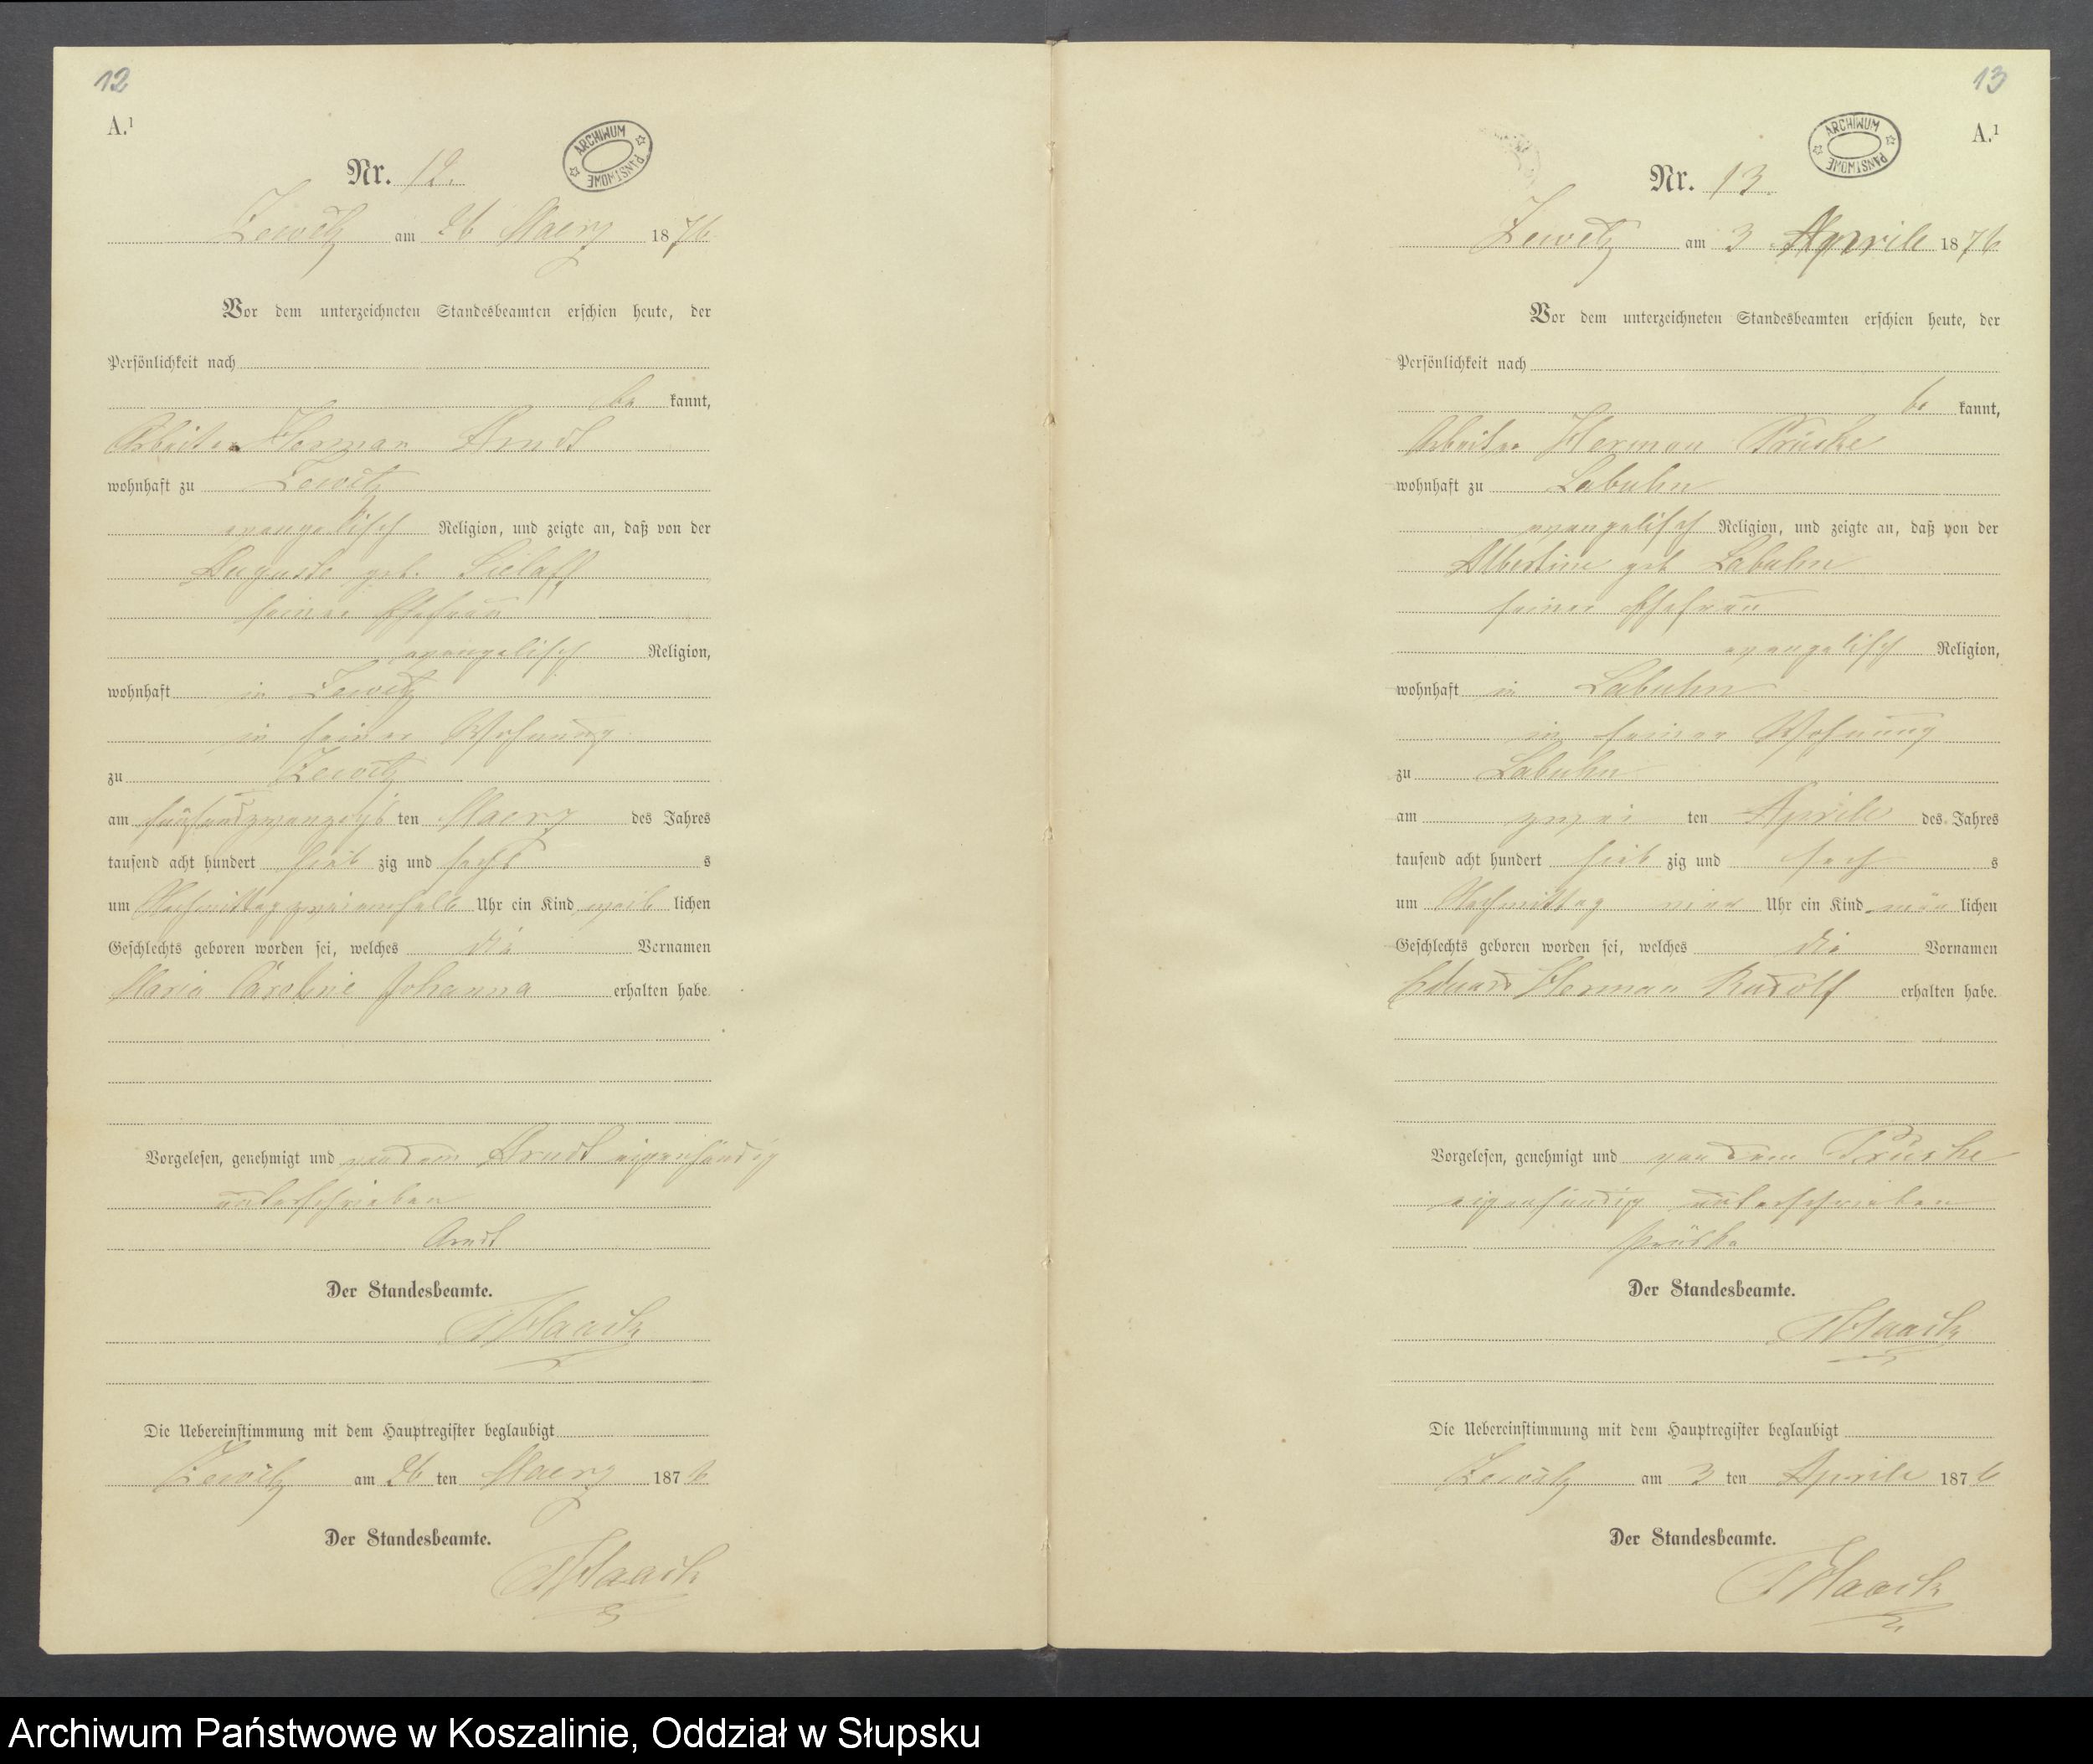 12
A.¹
ARCHIWUM PAŃSTWOWE
Nr. 12.
Zewitz am 26 Maerz 1876.
Vor dem unterzeichneten Standesbeamten erschien heute, der
Persönlichkeit nach
be kannt,
Arbeiter Herman Arndt
wohnhaft zu Zewitz
evangelisch Religion, und zeigte an, daß von der
Auguste geb. Sielaff
seiner Ehefrau
evangelisch Religion,
wohnhaft in Zewitz
in seiner Wohnung
zu Zewitz
am fünfundzwanzigs ten Maerz des Jahres
tausend acht hundert sieb zig und sechs s
um Nachmittag zweieinhalb Uhr ein Kind weib lichen
Geschlechts geboren worden sei, welches die Vornamen
Maria Caroline Johanna erhalten habe.
Vorgelesen, genehmigt und von dem Arndt eigenhändig
unterschrieben
Arndt
Der Standesbeamte.
Haack
Die Uebereinstimmung mit dem Hauptregister beglaubigt
Zewitz am 26 ten Maerz 1876
Der Standesbeamte.
Haack
13
A.¹
ARCHIWUM PAŃSTWOWE
Nr. 13.
Zewitz am 3. Aprile 1876
Vor dem unterzeichneten Standesbeamten erschien heute, der
Persönlichkeit nach
be kannt,
Arbeiter Herman Prüske
wohnhaft zu Labuhn
evangelisch Religion, und zeigte an, daß von der
Albertine geb Labuhn
seiner Ehefrau
evangelisch Religion,
wohnhaft in Labuhn
in seiner Wohnung
zu Labuhn
am zwei ten Aprile des Jahres
tausend acht hundert sieb zig und sech s
um Nachmittag vier Uhr ein Kind män lichen
Geschlechts geboren worden sei, welches die Vornamen
Eduard Herman Rudolf erhalten habe.
Vorgelesen, genehmigt und von dem Prüske
eigenhändig unterschrieben
Prüske
Der Standesbeamte.
Haack
Die Uebereinstimmung mit dem Hauptregister beglaubigt
Zewitz am 3 ten Aprile 1876
Der Standesbeamte.
Haack
Archiwum Państwowe w Koszalinie, Oddział w Słupsku